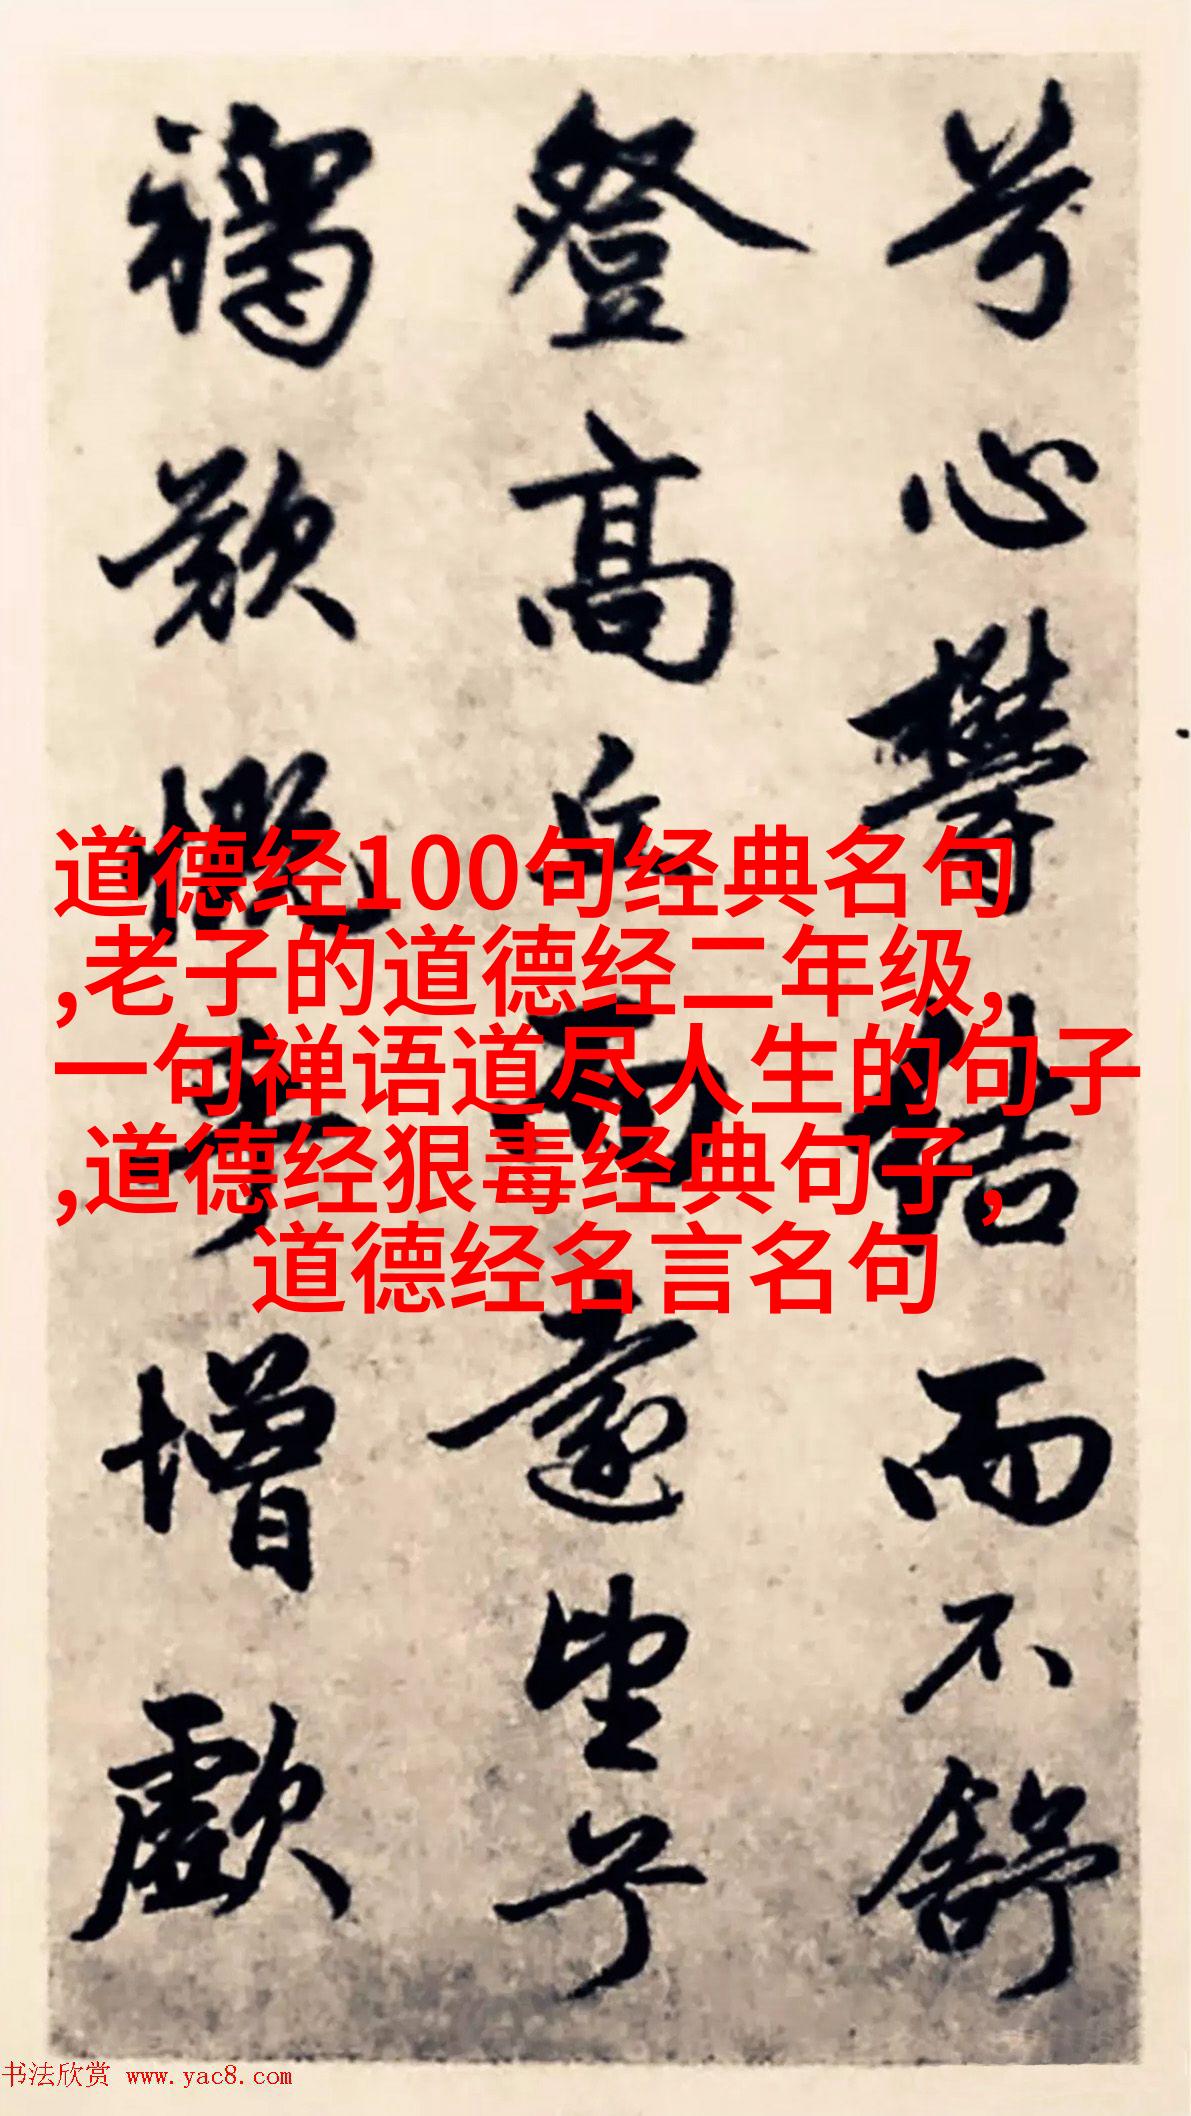 兮心鬱結而不舒
登高丘而遠望兮
增歔
道德经100句经典名句
,老子的道德经二年级,
一句禅语道尽人生的句子
,道德经狠毒经典句子,
道德经名言名句
书法欣赏 www.yac8.com